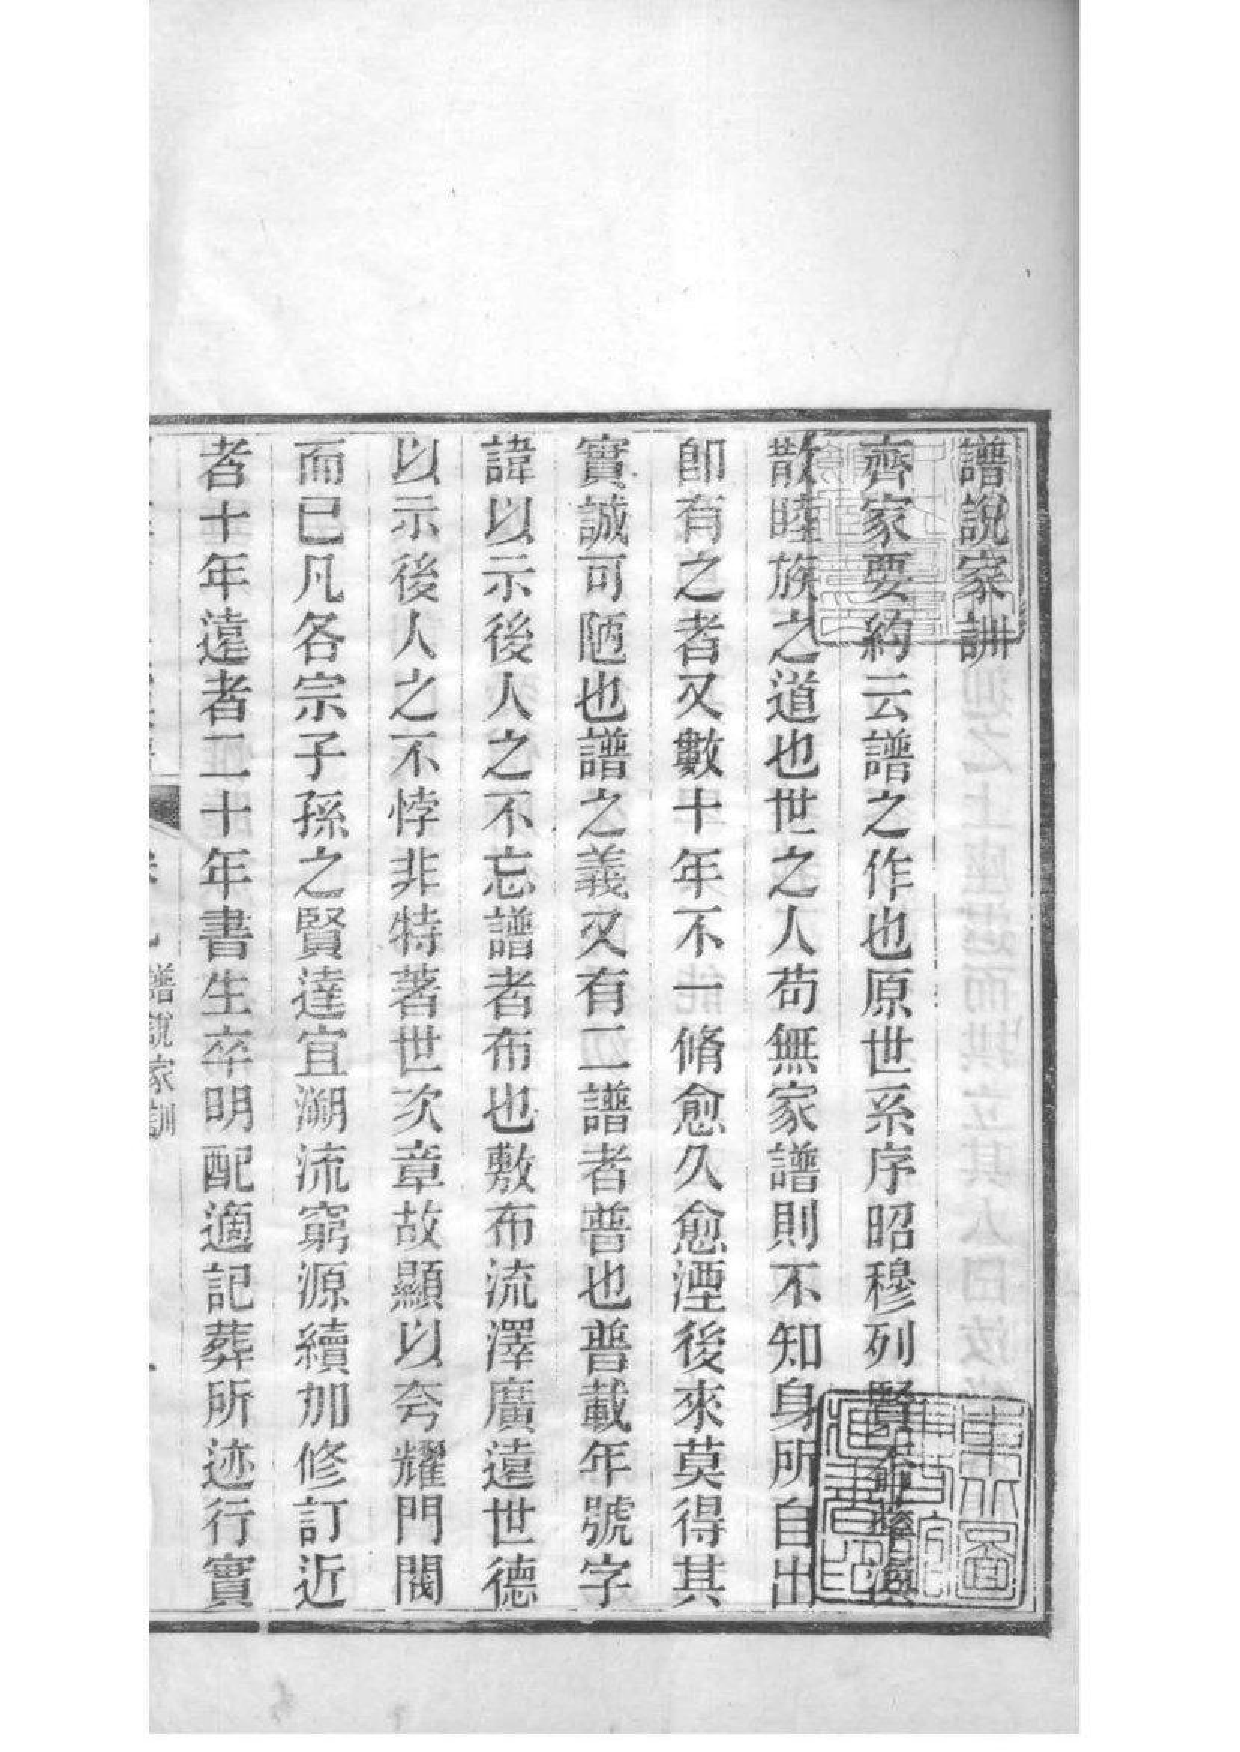 譜說家訓
齊家要約云譜之作也原世系序昭穆列賢渙
散睦族之道也世之人苟無家譜則不知身所自出
卽有之者又數十年不一脩愈久愈湮後來莫得其
實誠可陋也譜之義又有二譜者普也普載年號字
諱以示後人之不忘譜者布也敷布流澤廣遠世德
以示後人之不悖非特著世次章故顯以夸耀門閥
而已凡各宗子孫之賢達宜溯流窮源續加修訂近
者十年遠者二十年書生卒明配適記葬所迹行實
譜說家訓